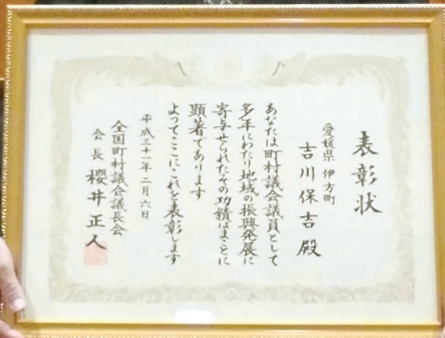 表彰状
愛媛県 伊方町
吉川保吉 殿
あなたは町村議会議員として
多年にわたり地域の振興発展に
寄与せられたその功績はまことに
顕著であります
よってここにこれを表彰します
平成三十一年二月六日
全国町村議会議長会
会長 櫻井正人